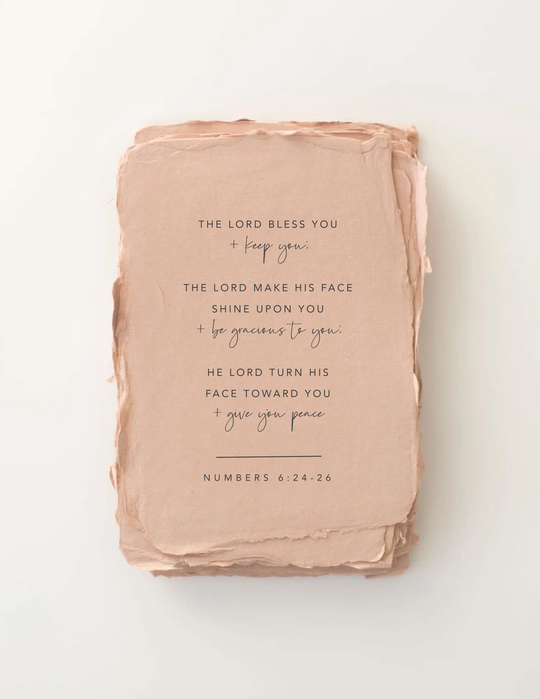 THE LORD BLESS YOU
+ keep you;
THE LORD MAKE HIS FACE
SHINE UPON YOU
+ be gracious to you;
HE LORD TURN HIS
FACE TOWARD YOU
+ give you peace
NUMBERS 6:24-26